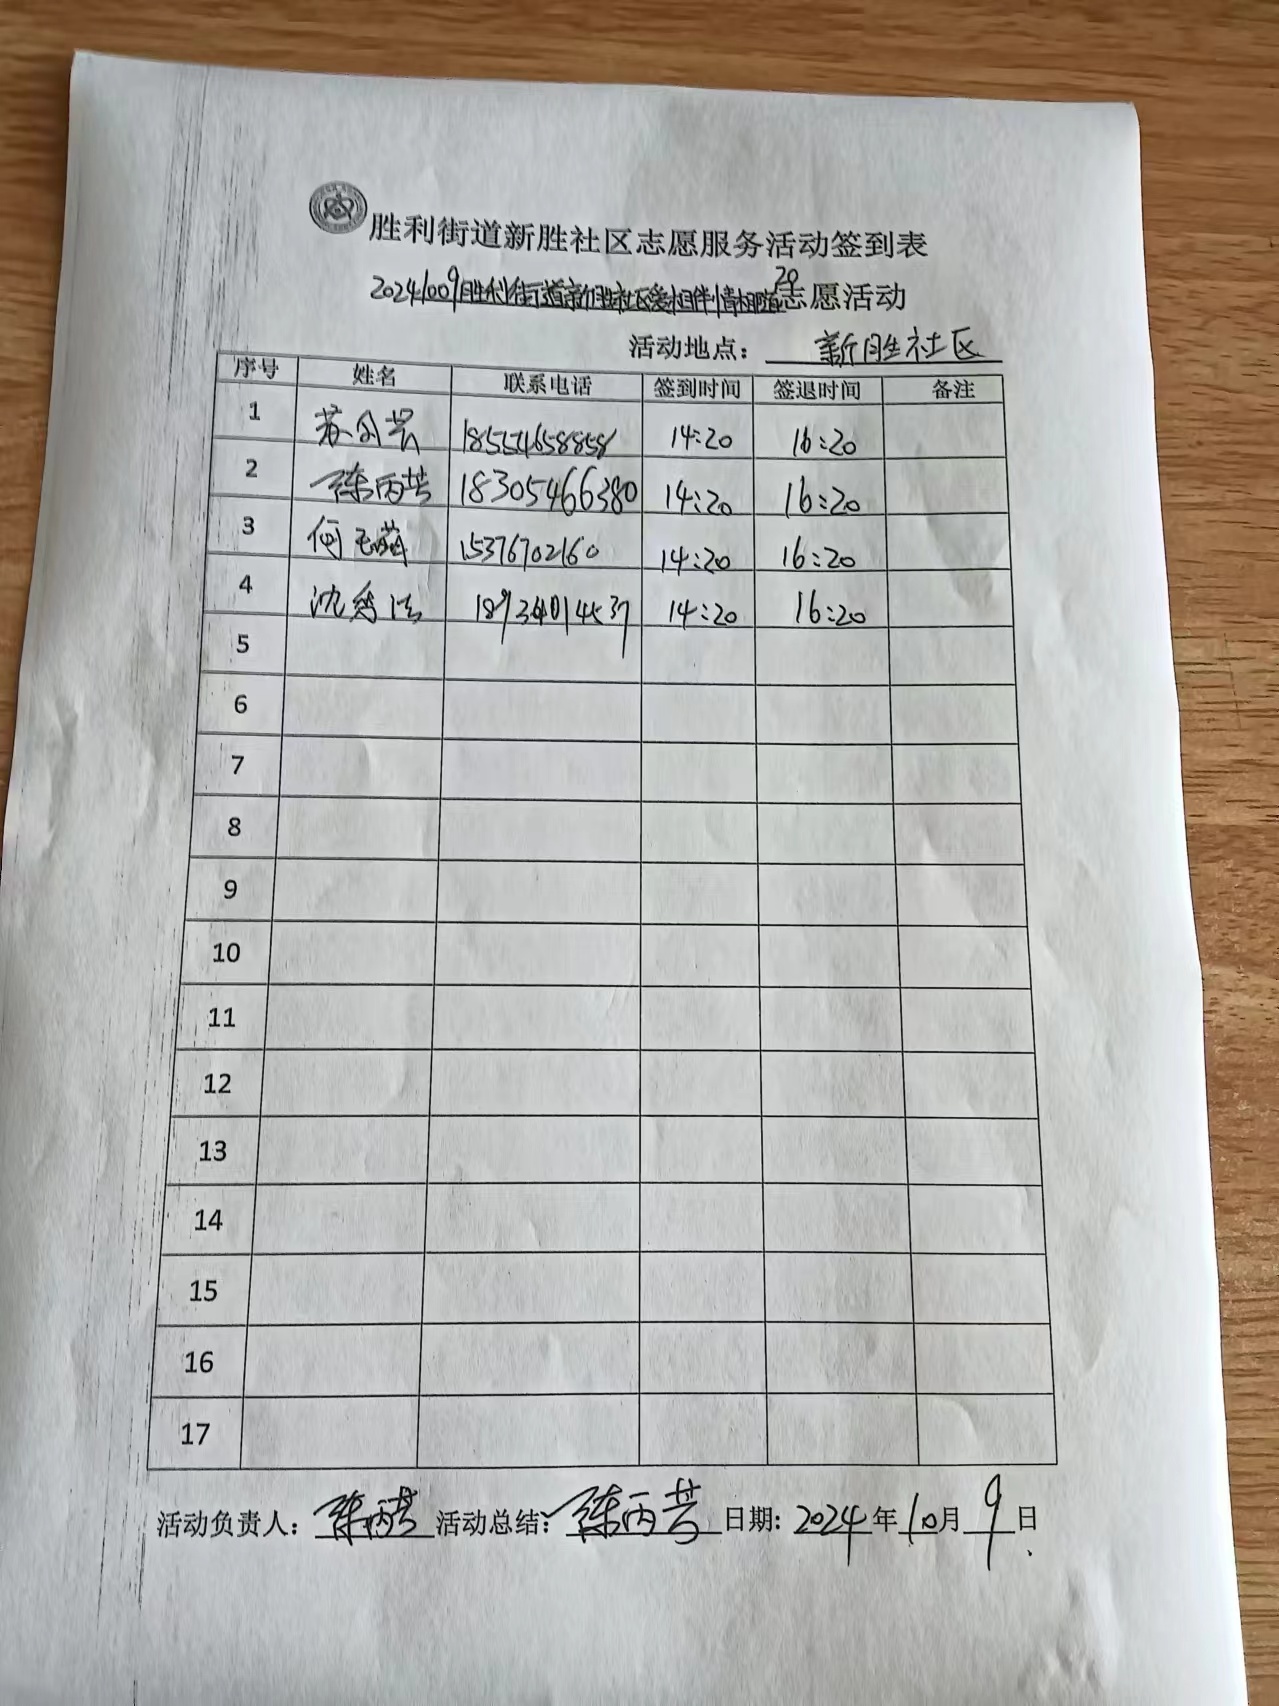 胜利街道新胜社区志愿服务活动签到表
20241009胜利街道新胜社区爱相伴情相随20志愿活动
活动地点：新胜社区
序号 姓名 联系电话 签到时间 签退时间 备注
1 14:20 16:20
2 陈丙芳 18305466380 14:20 16:20
3 何 15376702160 14:20 16:20
4 沈秀法 14:20 16:20
5
6
7
8
9
10
11
12
13
14
15
16
17
活动负责人：陈丙芳 活动总结：陈丙芳 日期：2024年10月9日